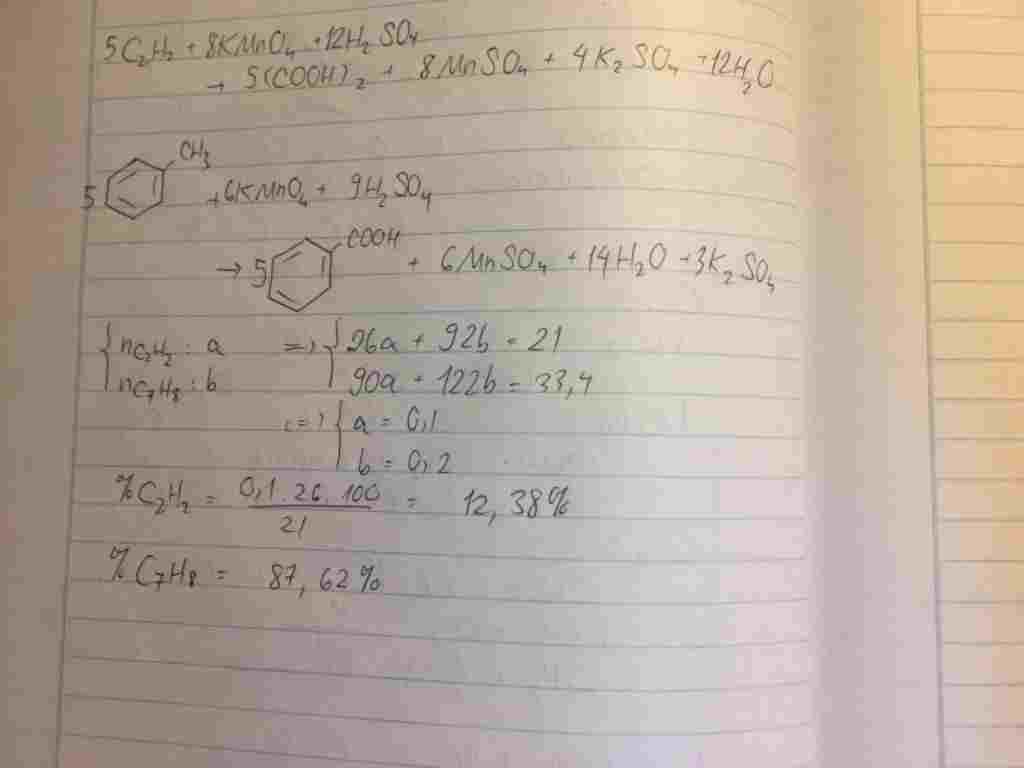 5C₂H₂ + 8KMnO₄ + 12H₂SO₄
→ 5(COOH)₂ + 8MnSO₄ + 4K₂SO₄ + 12H₂O
5 CH₃ + 6KMnO₄ + 9H₂SO₄
→ 5 COOH + 6MnSO₄ + 14H₂O + 3K₂SO₄
{ nC₂H₂ : a => { 26a + 92b = 21
nC₇H₈ : b 90a + 122b = 33,4
<=> { a = 0,1
b = 0,2
%C₂H₂ = 0,1.26.100 / 21 = 12,38%
%C₇H₈ = 87,62%